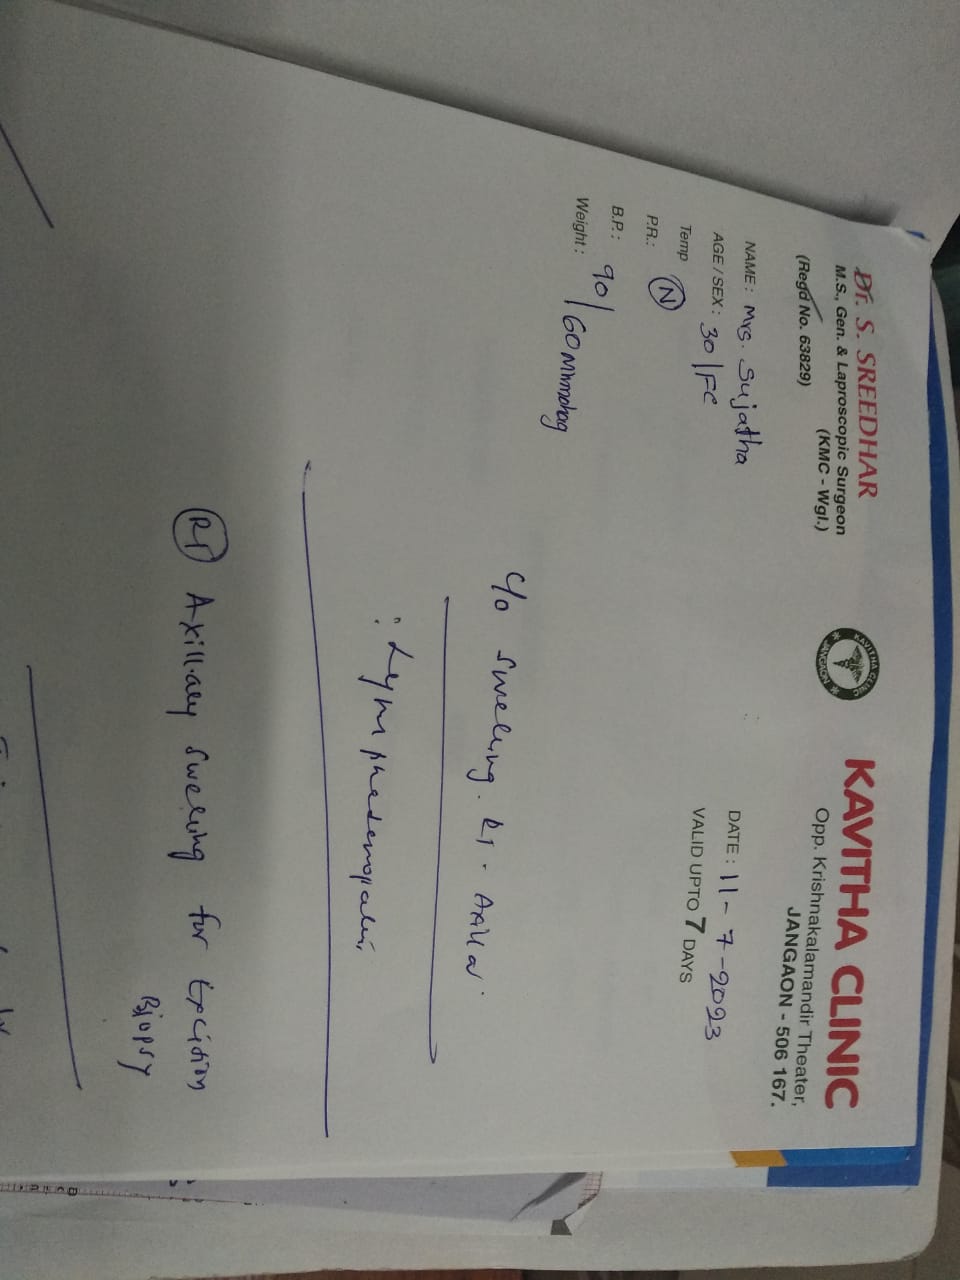 Dr. S. SREEDHAR
M.S., Gen. & Laproscopic Surgeon
(KMC - Wgl.)
(Regd No. 63829)
KAVITHA CLINIC
KAVITHA CLINIC
Opp. Krishnakalamandir Theater,
JANGAON - 506 167.
NAME : Mrs. Sujatha
DATE : 11-7-2023
AGE / SEX : 30/Fe
VALID UPTO 7 DAYS
Temp
P.R.: N
B.P.: 90/60 Mmohag
Weight :
c/o swelling. Rt. Axilla.
: Lymphadenopathy
Rt Axillary swelling for Excision
Biopsy